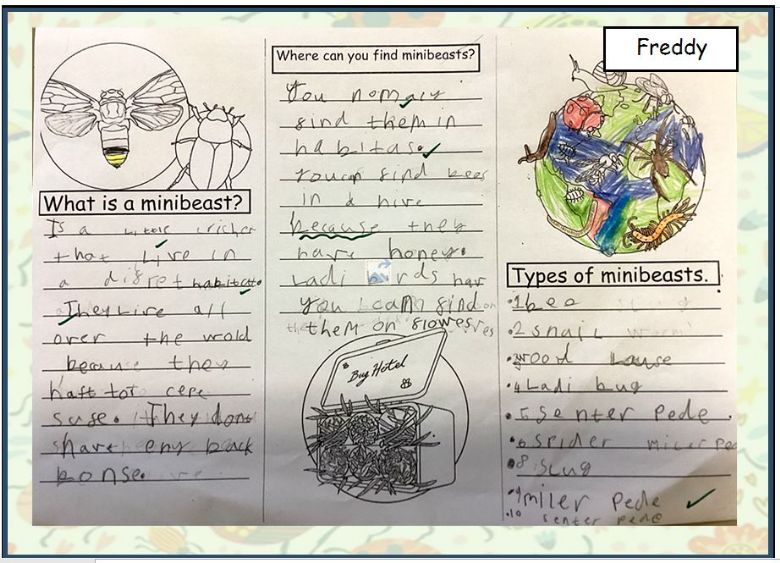 Freddy
What is a minibeast?
Is a little
that Live in
a difret habitat.
They Live all
over the wrold
becaus they
haft tot
suse. They dont
shave eny back
bonse.
Where can you find minibeasts?
You nomaly
find them in
habitas.
You can find bees
in a hive
because they
have honey.
Ladi birds hav
you can find
them on flowers
Bug Hotel
Types of minibeasts.
1 bee
2 snail
3 wood Lause
4 Ladi bug
5 Senter Pede.
6 Spider
8 slug
9 miler Pede
10 senter pede